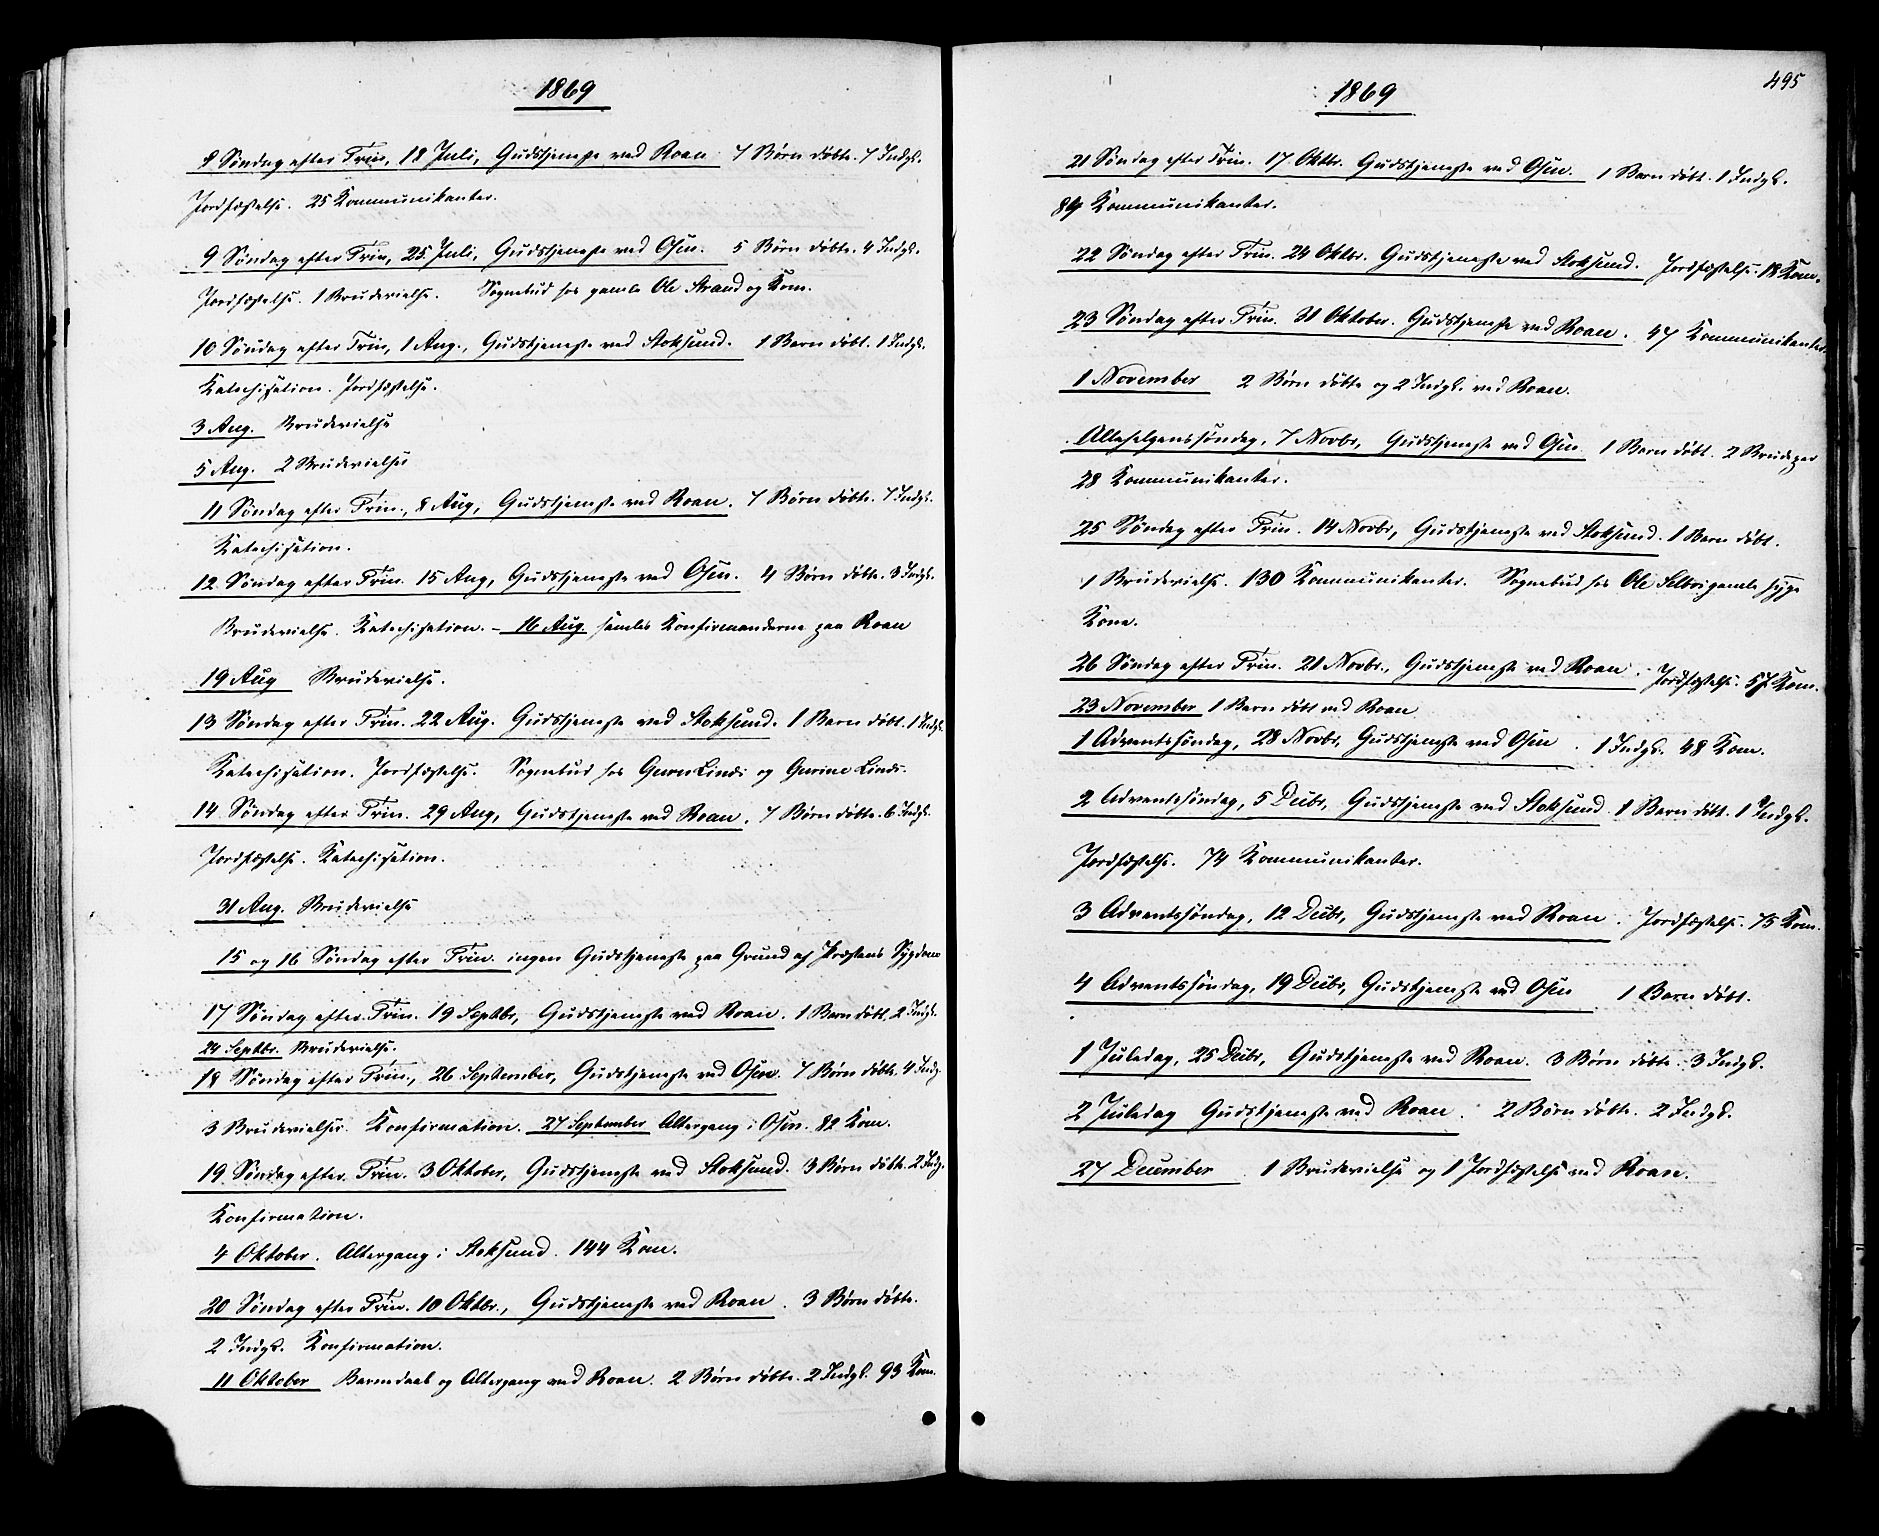 1869
8 Søndag efter Trin, 18 Juli, Gudstjeneste ved Roan 7 Børn døbte. 7 Indgl.
Jordfæstelse. 25 Kommunikanter.
9 Søndag efter Trin, 25 Juli, Gudstjeneste ved Osen. 5 Børn døbte. 4 Indgl.
Jordfæstelse. 1 Brudevielse. Sognebud hos gamle Ole Strand og Kom.
10 Søndag efter Trin, 1 Aug., Gudstjeneste ved Stoksund. 1 Barn døbt. 1 Indgl.
Katechisation. Jordfæstelse.
3 Aug. Brudevielse
5 Aug. 2 Brudevielser
11 Søndag efter Trin., 8 Aug, Gudstjeneste ved Roan. 7 Børn døbte. 7 Indgl.
Katechisation.
12 Søndag efter Trin. 15 Aug, Gudstjeneste ved Osen. 4 Børn døbte. 3 Indgl.
Brudevielse. Katechisation. – 16 Aug. samles Konfirmanderne paa Roan
19 Aug Brudevielse.
13 Søndag efter Trin. 22 Aug. Gudstjeneste ved Stoksund. 1 Barn døbt. 1 Indgl.
Katechisation. Jordfæstelse. Sognebud hos Linds og Gurine Linds.
14 Søndag efter Trin. 29 Aug, Gudstjeneste ved Roan. 7 Børn døbte. 6 Indgl.
Jordfæstelse. Katechisation.
31 Aug. Brudevielse
15 og 16 Søndag efter Trin. ingen Gudstjeneste paa Grund af Præstens Sygdom
17 Søndag efter Trin. 19 Septbr, Gudstjeneste ved Roan. 1 Barn døbt. 2 Indgl.
24 Septbr. Brudevielse.
18 Søndag efter Trin., 26 September, Gudstjeneste ved Osen. 7 Børn døbte. 4 Indg.
3 Brudevielser. Konfirmation. 27 September Altergang i Osen. 82 Kom.
19 Søndag efter Trin. 3 Oktober, Gudstjeneste ved Stoksund. 3 Børn døbte. 2 Indg.
Konfirmation.
4 Oktober. Altergang i Stoksund. 144 Kom.
20 Søndag efter Trin. 10 Oktbr., Gudstjeneste ved Roan. 3 Børn døbte.
2 Indgl. Konfirmation.
11 Oktober Barnedaab og Altergang ved Roan. 2 Børn døbte. 2 Indgl. 93 Kom.
495
1869
21 Søndag efter Trin. 17 Oktbr. Gudstjeneste ved Osen. 1 Barn døbt. 1 Indgl.
89 Kommunikanter.
22 Søndag efter Trin. 24 Oktbr. Gudstjeneste ved Stoksund. Jordfæstelse. 18 Kom.
23 Søndag efter Trin. 31 Oktober. Gudstjeneste ved Roan. 47 Kommunikanter.
1 November 2 Børn døbte og 2 Indgl. ved Roan.
Allehelgenssøndag, 7 Novbr, Gudstjeneste ved Osen 1 Barn døbt. 2 Brudepar
28 Kommunikanter.
25 Søndag efter Trin. 14 Novbr, Gudstjeneste ved Stoksund. 1 Barn døbt.
1 Brudevielse. 130 Kommunikanter. Sognebud hos Ole Selbos gamle syge
Kone.
26 Søndag efter Trin. 21 Novbr., Gudstjeneste ved Roan. Jordfæstelse. 57 Kom.
23 November 1 Barn døbt ved Roan
1 Adventssøndag, 28 Novbr, Gudstjeneste ved Osen. 1 Indgl. 48 Kom.
2 Adventssøndag, 5 Decbr, Gudstjeneste ved Stoksund 1 Barn døbt. 1 Indgl.
Jordfæstelse. 74 Kommunikanter.
3 Adventssøndag, 12 Decbr, Gudstjeneste ved Roan. Jordfæstelse. 75 Kom.
4 Adventssøndag, 19 Decbr, Gudstjeneste ved Osen 1 Barn døbt.
1 Juledag, 25 Decbr, Gudstjeneste ved Roan. 3 Børn døbte. 3 Indgl.
2 Juledag Gudstjeneste ved Roan. 2 Børn døbte. 2 Indgl.
27 December 1 Brudevielse og 1 Jordfæstelse ved Roan.